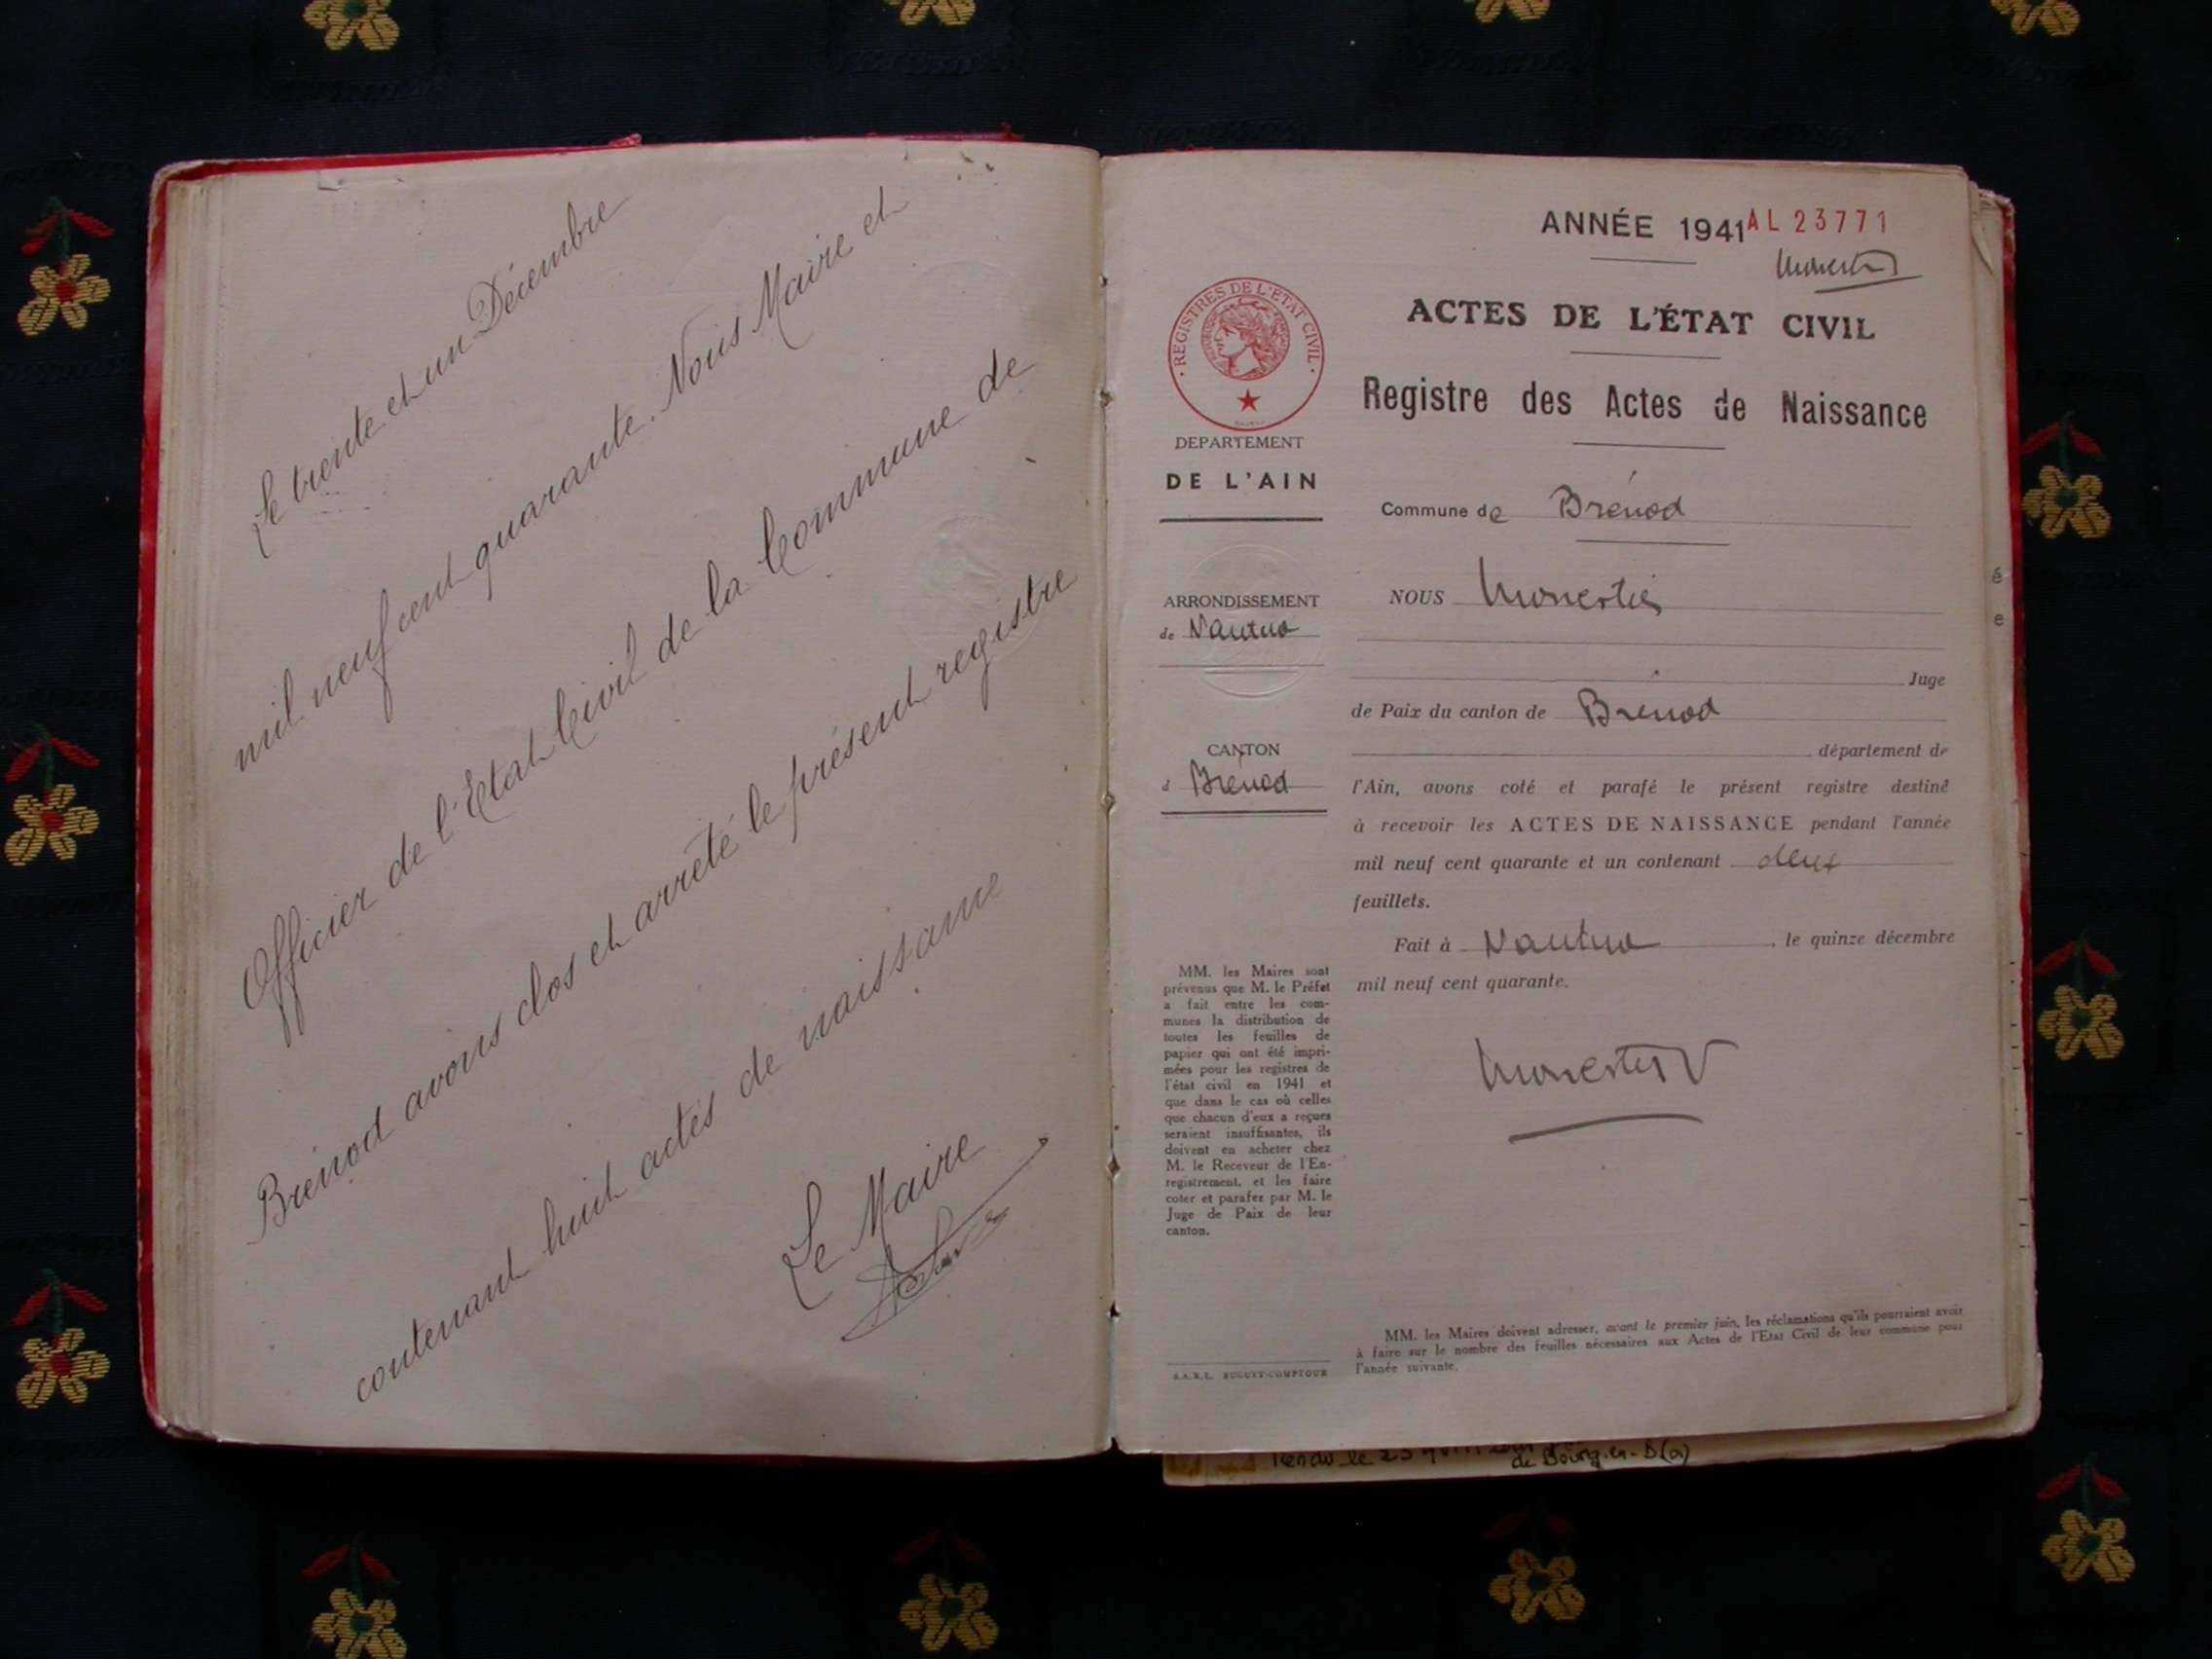 Le trente et un Décembre
mil neuf cent quarante. Nous Maire et
Officier de l'Etat Civil de la Commune de
Brénod avons clos et arrêté le présent registre
contenant huit actes de naissance
Le Maire
ANNÉE 1941 AL 23771
ACTES DE L'ÉTAT CIVIL
Registre des Actes de Naissance
· REGISTRES DE L'ETAT CIVIL ·
DEPARTEMENT
DE L'AIN
ARRONDISSEMENT
de Nantua
CANTON
d Brénod
MM. les Maires sont
prévenus que M. le Préfet
a fait entre les com-
munes la distribution de
toutes les feuilles de
papier qui ont été impri-
mées pour les registres de
l'état civil en 1941 et
que dans le cas où celles
que chacun d'eux a reçues
seraient insuffisantes, ils
doivent en acheter chez
M. le Receveur de l'En-
registrement, et les faire
coter et parafer par M. le
Juge de Paix de leur
canton.
Commune de Brénod
NOUS Monestier
Juge
de Paix du canton de Brénod
département de
l'Ain, avons coté et parafé le présent registre destiné
à recevoir les ACTES DE NAISSANCE pendant l'année
mil neuf cent quarante et un contenant deux
feuillets.
Fait à Nantua, le quinze décembre
mil neuf cent quarante.
MM. les Maires doivent adresser, avant le premier juin, les réclamations qu'ils pourraient avoir
à faire sur le nombre des feuilles nécessaires aux Actes de l'Etat Civil de leur commune pour
l'année suivante.
S.A.R.L. COMPTOUR
é
e
Rendu le 23
de Bourg-en-B(a)